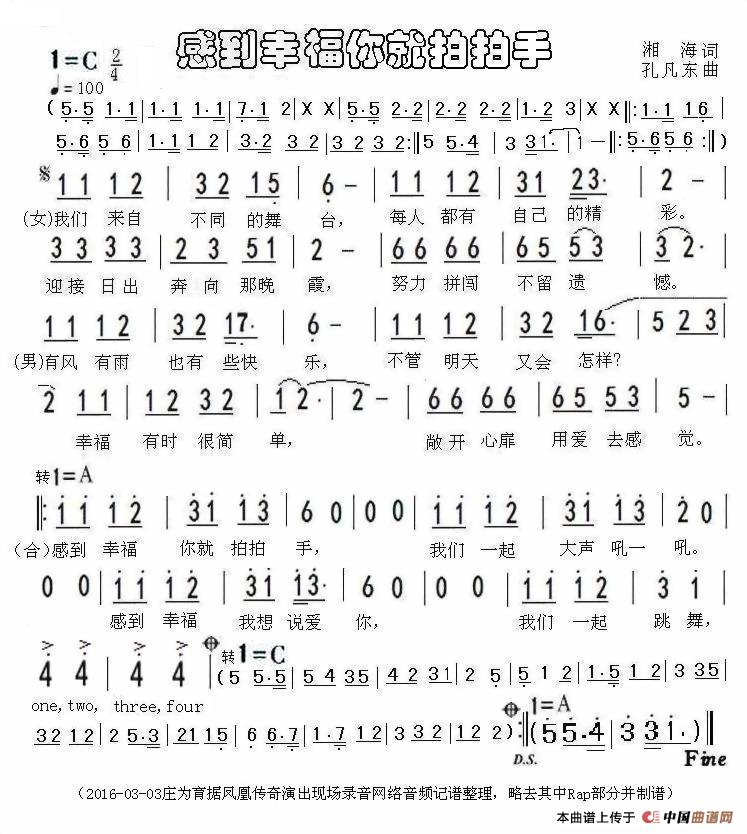 感到幸福你就拍拍手
1=C 2/4
♩=100
湘 海 词
孔 凡 东 曲
(5·5 1·1 | 1·1 1·1 | 7·1 2 | X X | 5·5 5·5 | 2·2 2·2 | 1·2 3 | X X ‖: 1·1 1 6 |
5·6 5·6 | 1·1 1 2 | 3·2 3 2 | 3 2 3 2 :‖ 5 5·4 | 3 3 1· | 1 – ‖: 5·6 5·6 :‖)
1 1 1 2 | 3 2 1 5 | 6 – | 1 1 1 2 | 3 1 2 3· | 2 – |
(女)我们 来自 不同 的舞 台, 每人 都有 自己 的精 彩。
3 3 3 3 | 2 3 5 1 | 2 – | 6 6 6 6 | 6 5 5 3 | 3 2· |
迎接 日出 奔向 那晚 霞, 努力 拼闯 不留 遗 憾。
1 1 1 2 | 3 2 1 7· | 6 – | 1 1 1 2 | 3 2 1 6· | 5 2 3 |
(男)有风 有雨 也有 些快 乐, 不管 明天 又会 怎样?
2 1 1 | 1 2 3 2 | 1 2· | 2 – | 6 6 6 6 | 6 5 5 3 | 5 – |
幸福 有时 很简 单, 敞开 心扉 用爱 去感 觉。
转1=A
‖: 1 1 1 2 | 3 1 1 3 | 6 0 | 0 0 | 1 1 1 2 | 3 1 1 3 | 2 0 |
(合)感到 幸福 你就 拍拍 手, 我们 一起 大声 吼一 吼。
0 0 | 1 1 1 2 | 3 1 1 3· | 6 0 | 0 0 | 1 1 1 2 | 3 1 |
感到 幸福 我想 说爱 你, 我们 一起 跳 舞,
4 4 | 4 4 | 转1=C (5 5·5 | 5 4 3 5 | 4 2 3 1 | 5·5 1 2 | 1·5 1 2 | 1 3 5 |
one,two, three,four
3 2 1 2 | 2·3 5·3 | 2 1 1 5 | 6 6·7 | 1·7 1 2 | 3 3 3 2 | 1 2 ) :‖ 1=A (5 5 5·4 | 3 3 3 1· )‖
D.S. Fine
(2016-03-03庄为育据凤凰传奇演出现场录音网络音频记谱整理，略去其中Rap部分并制谱)
本曲谱上传于 中国曲谱网